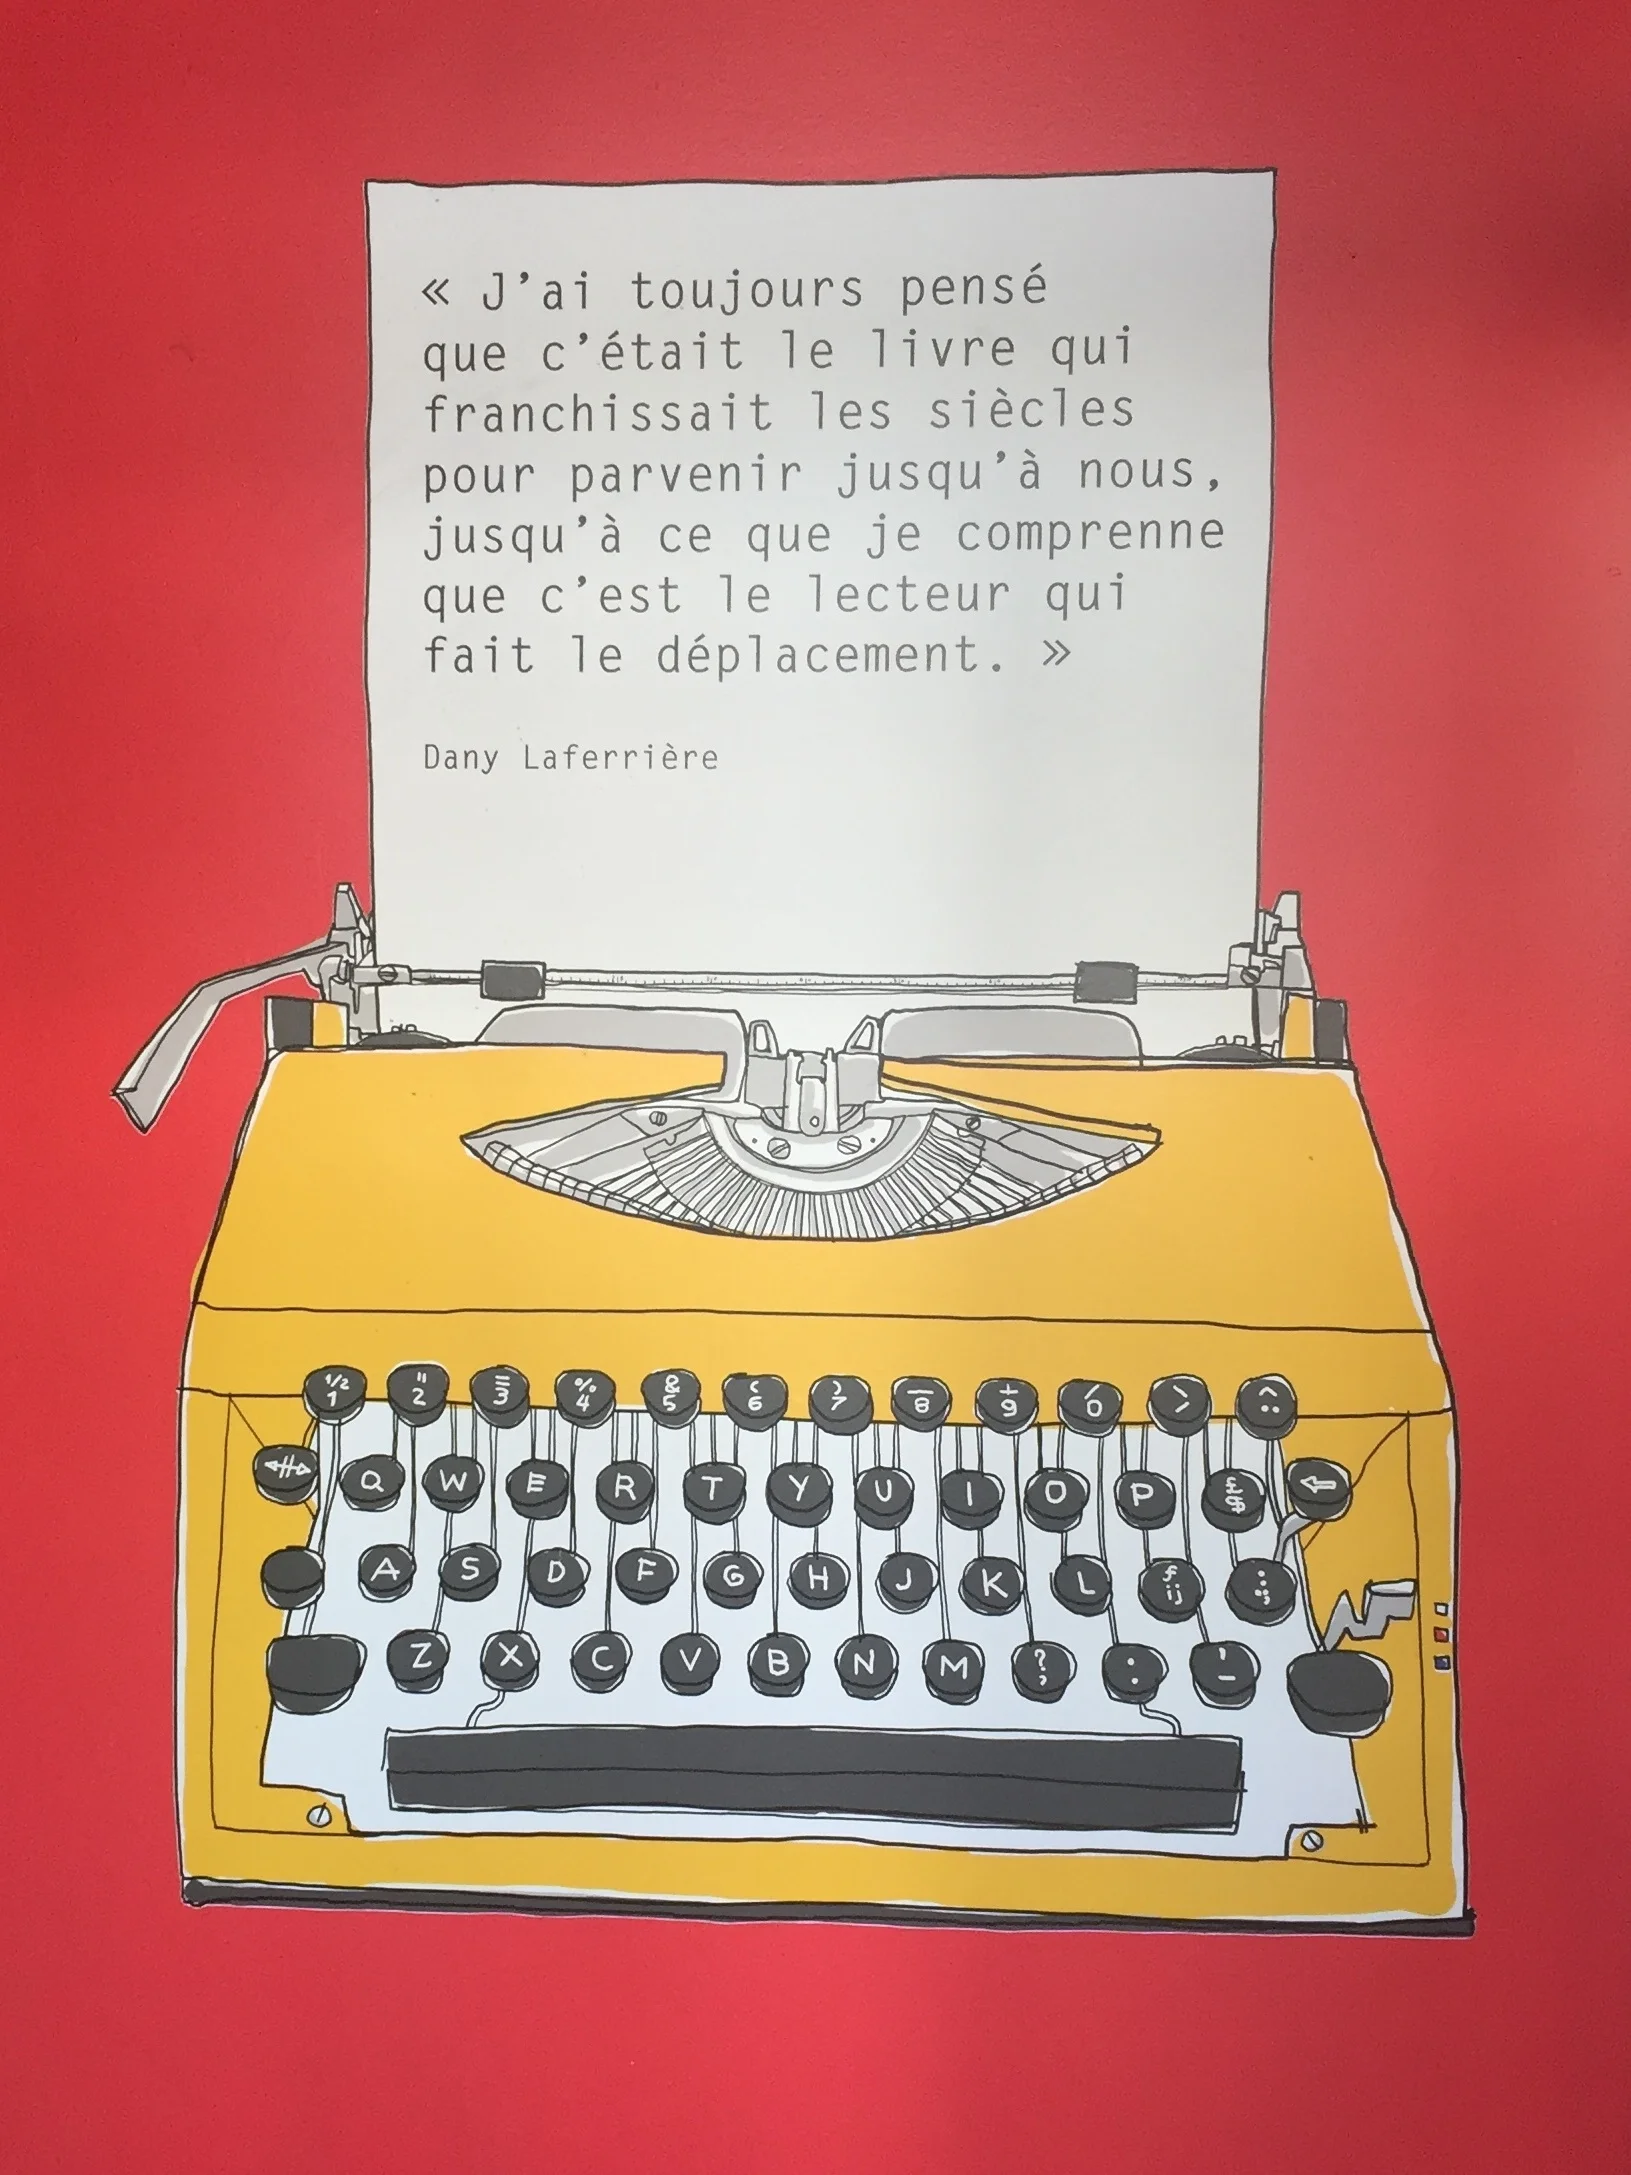 « J'ai toujours pensé
que c'était le livre qui
franchissait les siècles
pour parvenir jusqu'à nous,
jusqu'à ce que je comprenne
que c'est le lecteur qui
fait le déplacement. »
Dany Laferrière
1/2 " = % & ( ) _ + /
1 2 3 4 5 6 7 8 9 0
Q W E R T Y U I O P £ $
A S D F G H J K L ƒ ij
Z X C V B N M ? , : ' -